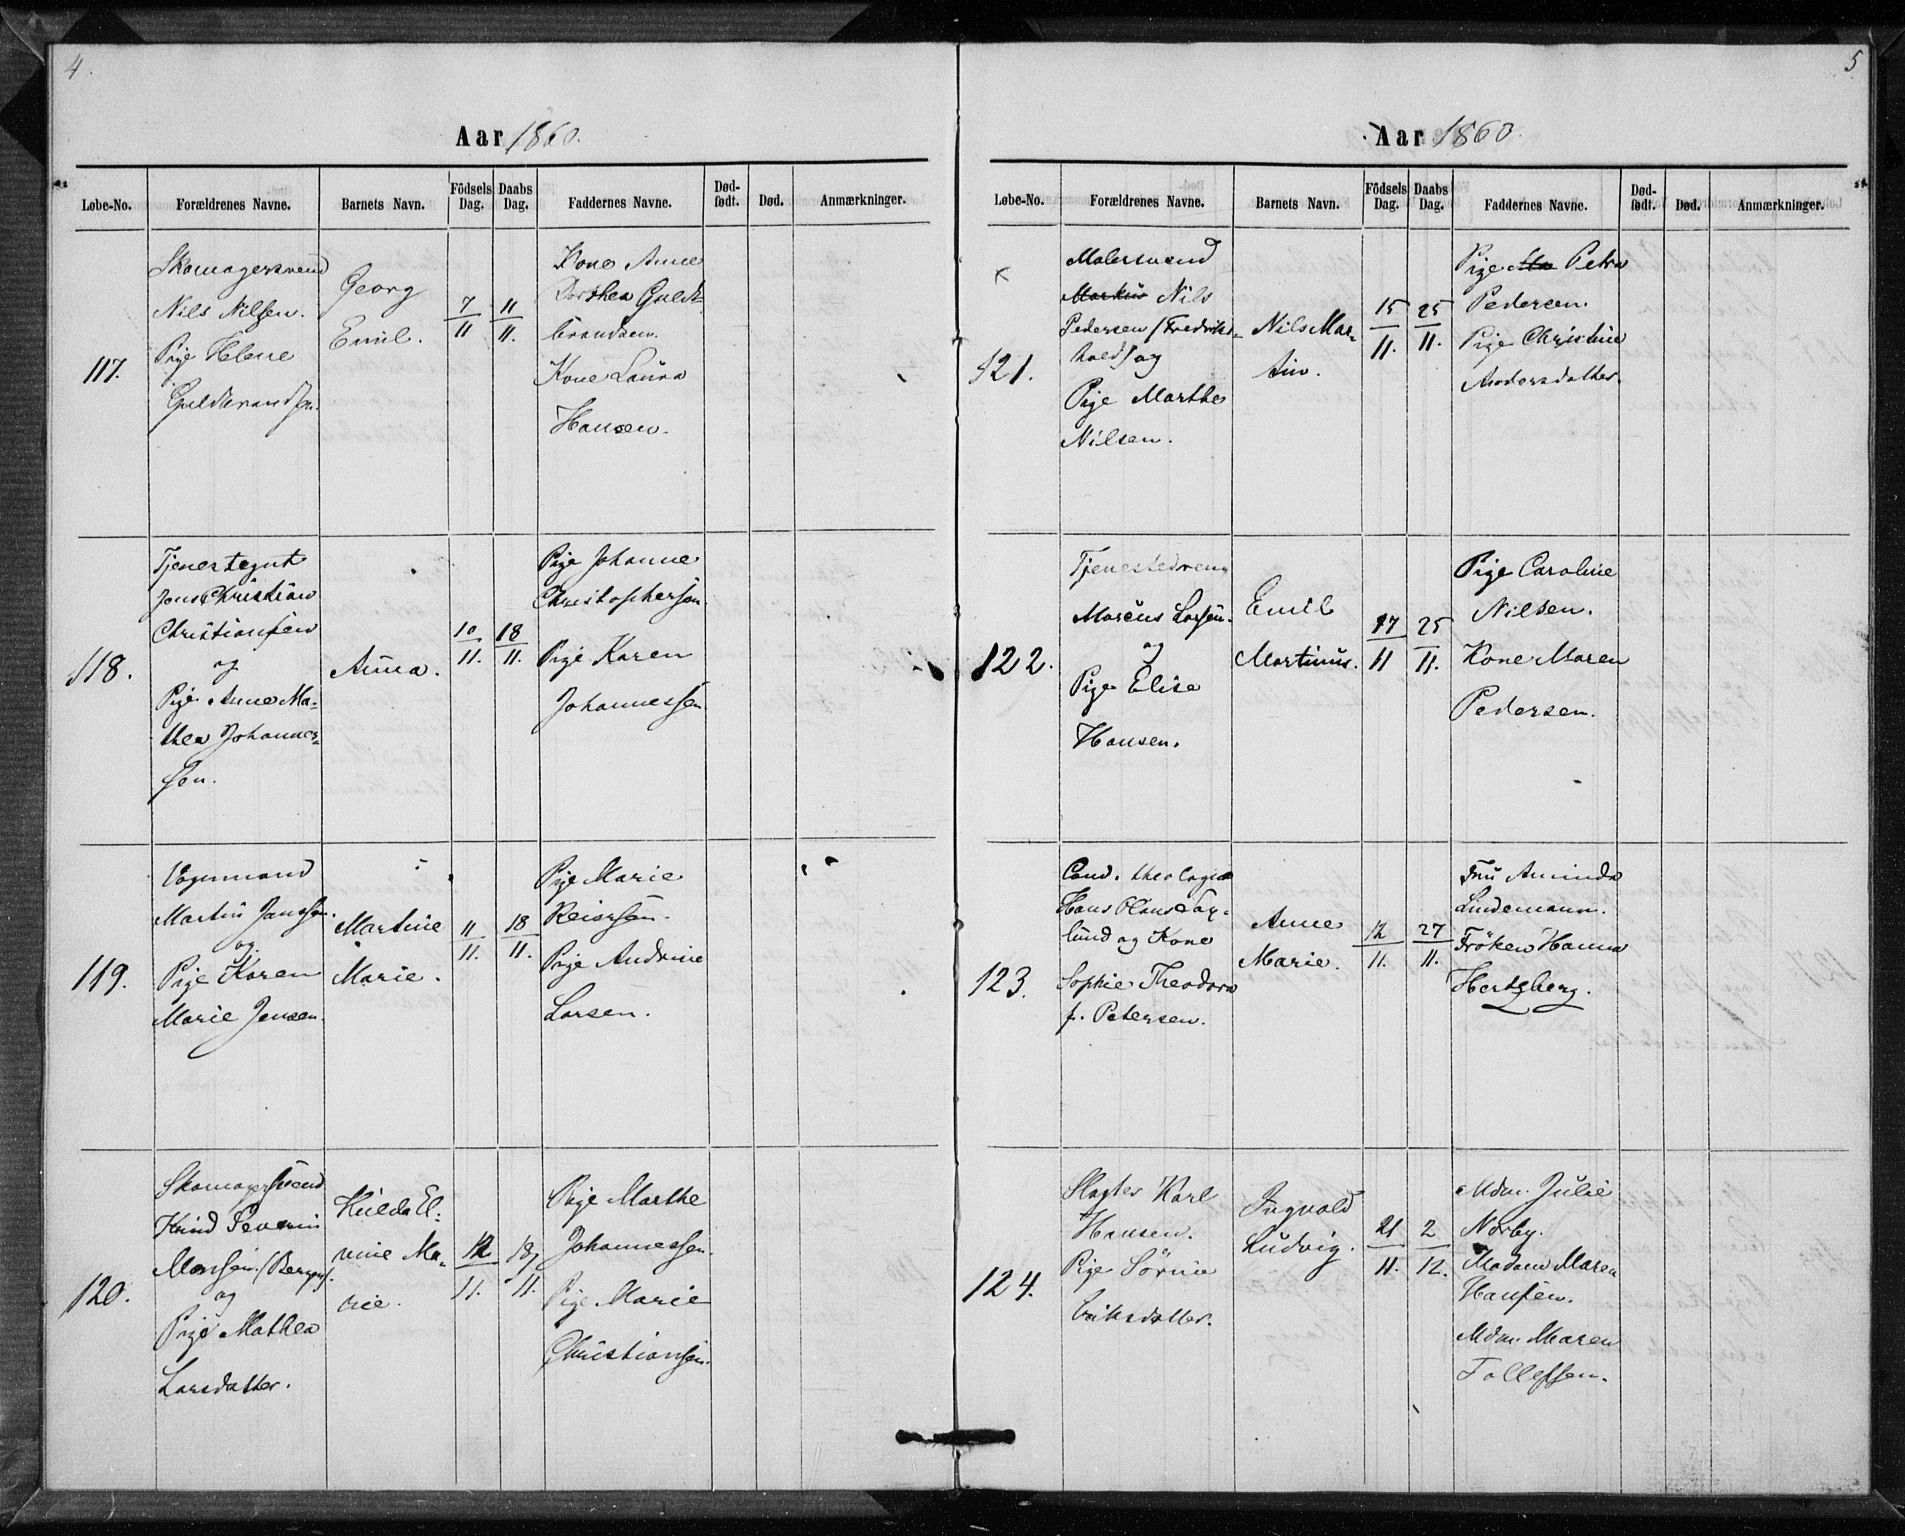 4.
Aar 1860.
Løbe-No. Forældrenes Navne. Barnets Navn. Födsels Dag. Daabs Dag. Faddernes Navne. Død-født. Død. Anmærkninger.
117.
Skomagersvend
Nils Nilsen.
Pige Helene
Guldbrandsen.
Georg
Emil.
7/11
11/11.
Kone Anne
Dorthea Guld-
brandsen.
Kone Laura
Hansen.
118.
Tjenestegut
Jens Christian
Christiansen
og
Pige Anne Ma-
thea Johannes-
sen.
Anna.
10/11.
18/11.
Pige Johanne
Christophersen.
Pige Karen
Johannessen
119.
Vognmand
Martin Janssen.
og
Pige Karen
Marie Jensen.
Martine
Marie.
11/11.
18/11.
Pige Marie
Reiersen.
Pige Andrine
Larsen.
120.
Skomagersvend
Knud Severin
Monsen. (Bergen).
og
Pige Mathea
Larsdatter.
Hulda El-
vine Ma-
rie.
12/11.
18/11.
Pige Marthe
Johannessen.
Pige Marie
Christiansen.
5
Aar 1860.
Løbe-No. Forældrenes Navne. Barnets Navn. Födsels Dag. Daabs Dag. Faddernes Navne. Død-født. Død. Anmærkninger.
×
121.
Malersvend
Markus Nils
Pedersen (Fredriks-
hald) og
Pige Marthe
Nilsen.
Nils Mar-
tin.
15/11.
25/11.
Pige Petra
Pedersen.
Pige Christine
Andersdatter.
122.
Tjenestedreng
Marcus Larsen.
og
Pige Elise
Hansen.
Emil
Martinus.
17/11
25/11.
Pige Caroline
Nilsen.
Kone Maren
Pedersen.
123.
Cand. theologiæ
Hans Claus
lund og Kone
Sophie Theodora
f. Petersen.
Anne
Marie.
12/11.
27/11.
Fru Aminda
Lindemann.
Fröken Hanna
Hertzberg.
124.
Slagter Karl
Hansen.
Pige Sörine
Eriksdatter.
Ingvald
Ludvig.
21/11.
2/12.
Mdm. Julie
Nörby.
Madam Maren
Hansen.
Mdm. Maren
Tollefsen.